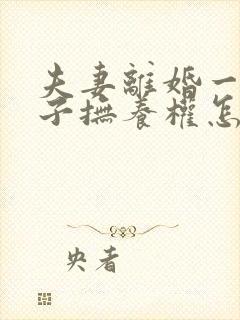 夫妻離婚一
子撫養權怎
央者